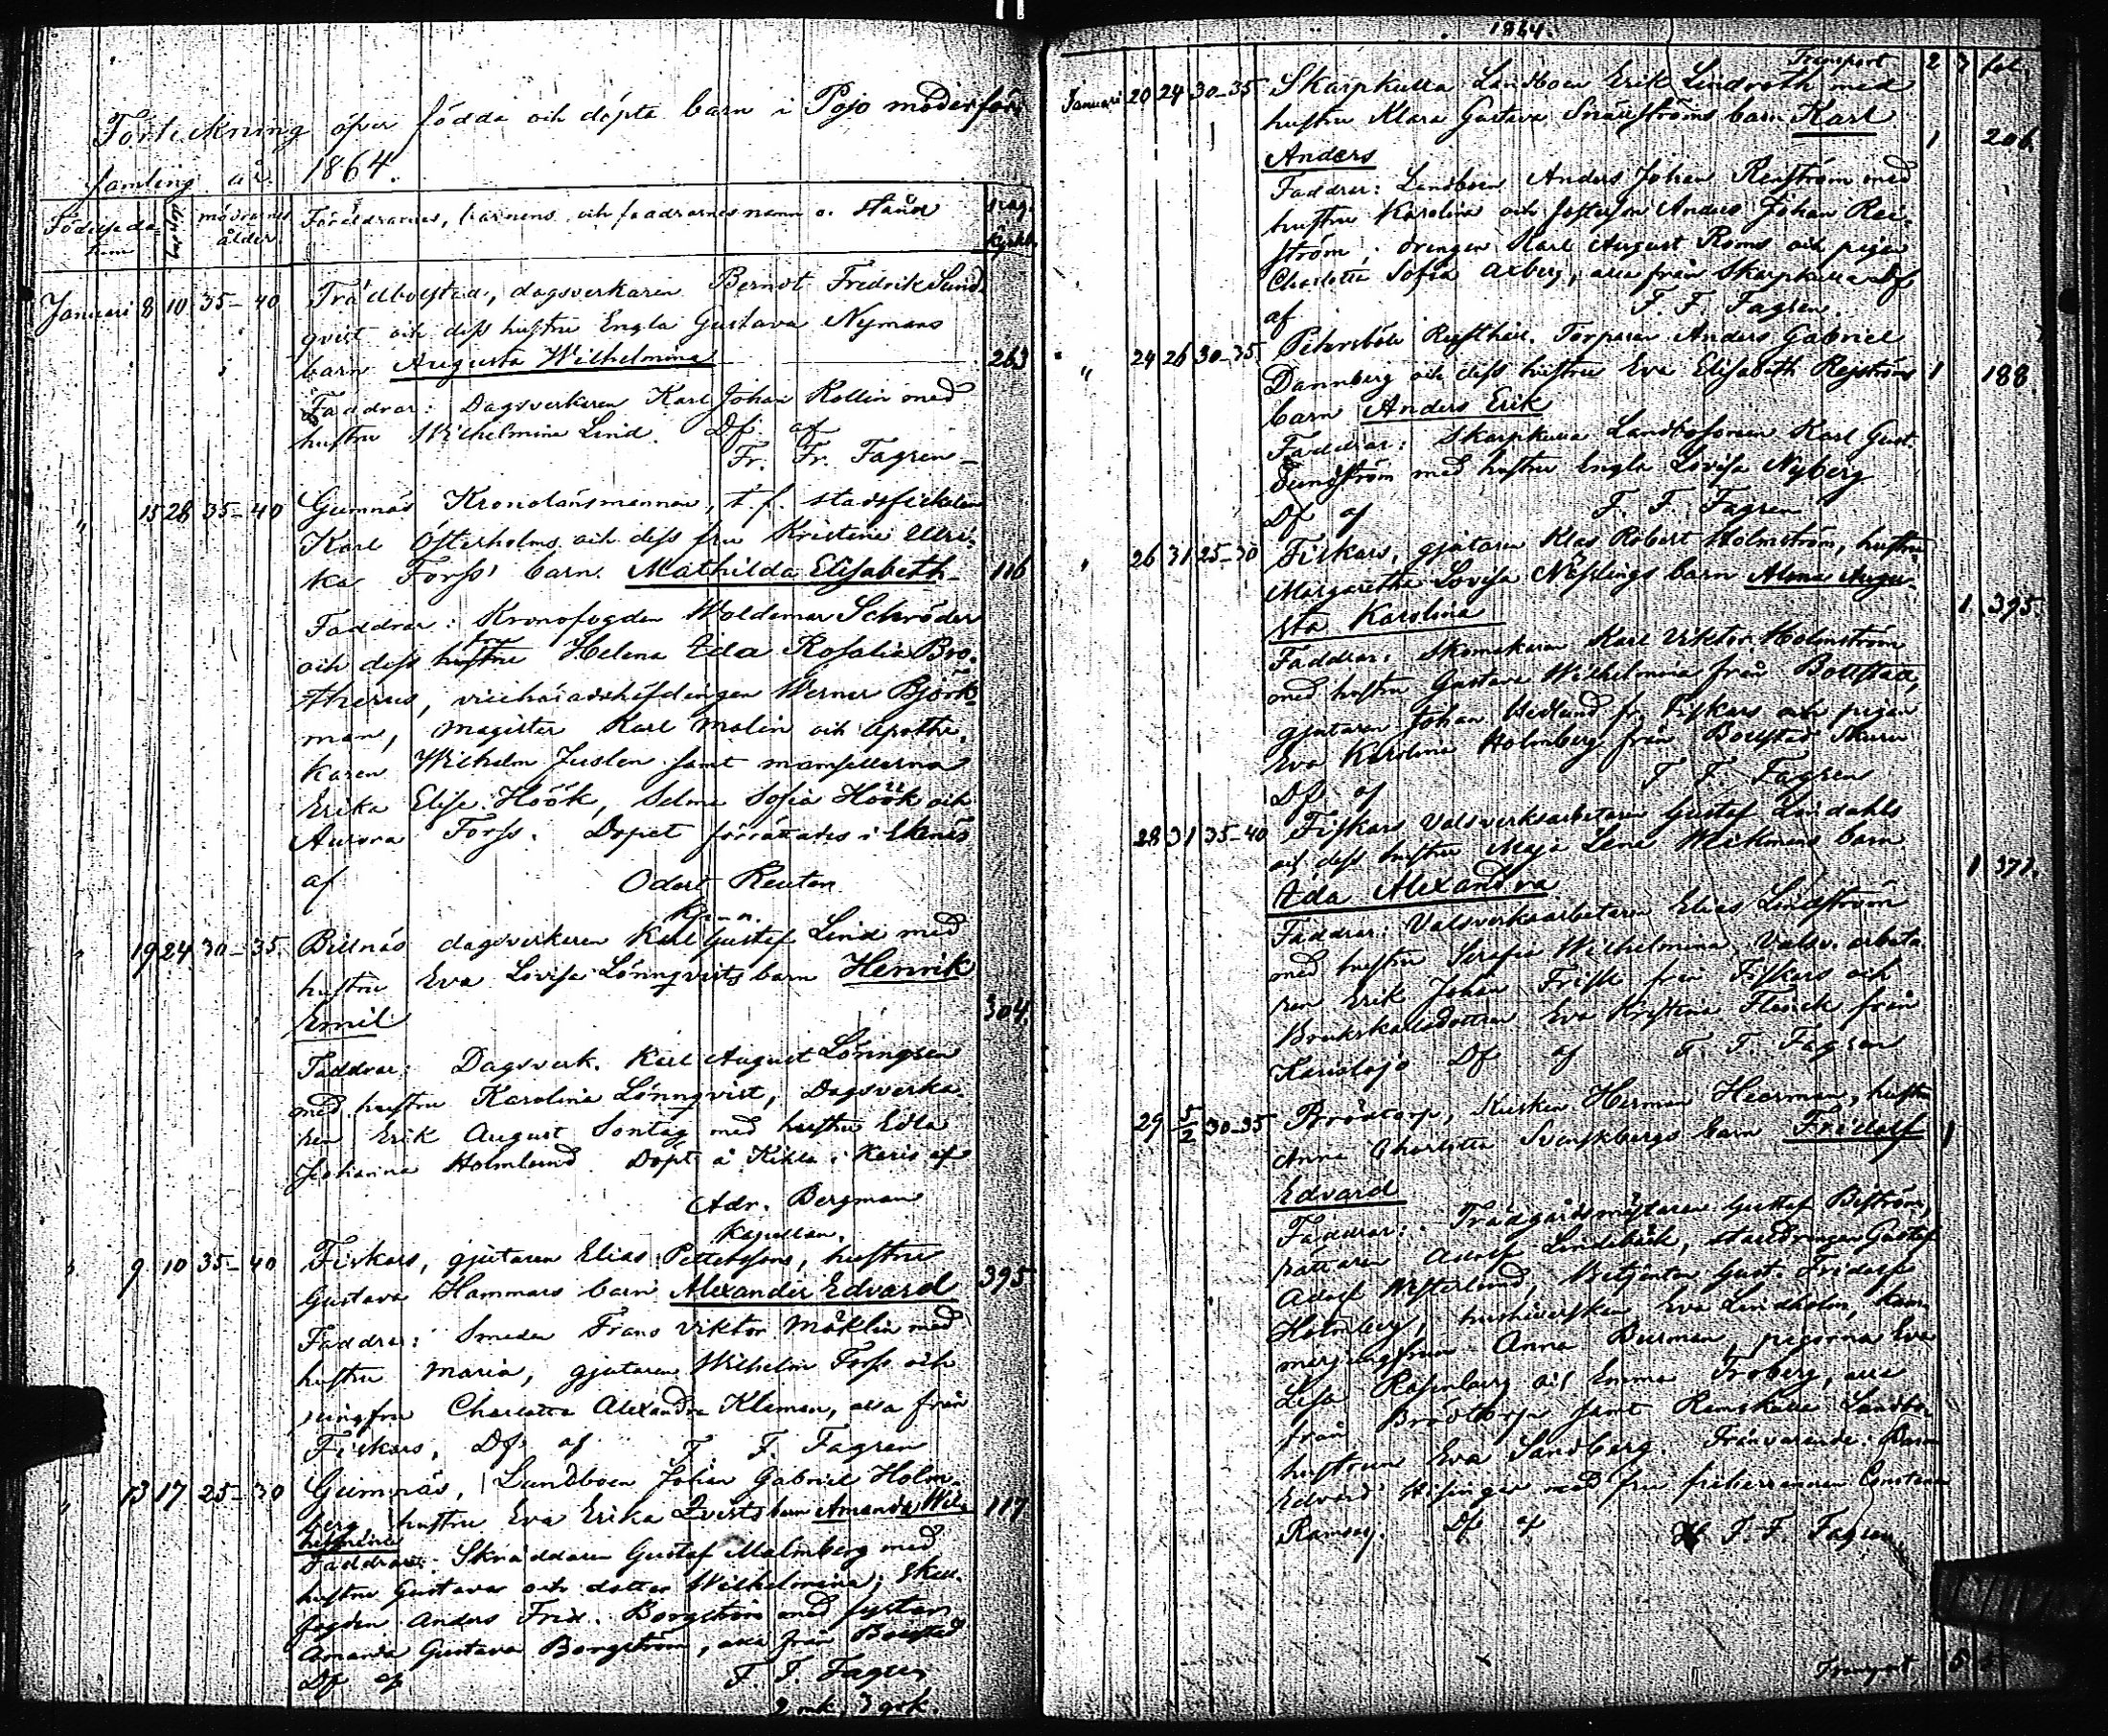 Förteckning öfver födda och döpta barn i Pojo moderför-
samling år 1864.
Födelseda-
tum
döpdag
mödrarnes
ålder.
Föräldrarnes, barnens och faddrarnes namn o. stånd
pag.
kyrkb.
Januari 8 10 35-40 Trädbolstad, dagsverkaren Berndt Fredrik Sund-
qvist och dess hustru Engla Gustava Nymans
barn Augusta Wilhelmina 263
Faddrar: Dagsverkaren Karl Johan Rollin med
hustru Wilhelmina Lind. Df. af
Fr. Fr. Fagren
" 15 28 35-40 Gumnäs Kronolänsmannen, t.f. stadsfiskalen
Karl Österholms och dess fru Kristina Ulri-
ka Forss' barn. Mathilda Elisabeth 116
Faddrar: Kronofogden Woldemar Schröder
och dess hustru fru Helena Ida Rosalia Bro-
therus, vicehäradshöfdingen Werner Björk-
man, magister Karl Malin och Apothe-
karen Wilhelm Juslen samt mamsellerna
Erika Elise Höök, Selma Sofia Höök och
Aurora Forss. Dopet förrättades i Ekenäs
af Odert Reuter
" 19 24 30-35 Billnäs dagsverkaren Karl Gustaf Lind med
hustru Eva Lovisa Lönnqvists barn Henrik
Emil 304.
Faddrar: Dagsverk. Karl August Löningren
med hustru Karolina Lönnqvist, Dagsverka-
ren Erik August Sontag med hustru Edla
Johanna Holmlund. Döpt å Kihla i Karis af
Adr. Bergman
Kapellan.
" 9 10 35-40 Fiskars, gjutaren Elias Pettersons, hustru
Gustava Hammars barn Alexander Edvard 395
Faddrar: Smeden Frans Viktor Mäklin med
hustru Maria, gjutaren Wilhelm Forss och
jungfru Charlotta Alexandra Kleman, alla från
Fiskars, Df af F. F. Fagren
" 13 17 25-30 Gumnäs, Landboen Johan Gabriel Holm-
berg hustru Eva Erika Qvists barn Amanda Wil-
helmina 117
Faddrar: Skräddaren Gustaf Malmberg med
hustru Gustava och dotter Wilhelmina, sken-
fogden Anders Fred. Borgström med syster
Amanda Gustava Borgström, alla från Bollstad
Df af F. F. Fagren
2 mk. 3 qvk.
1864.
Transport 2 3 fol.
Januari 20 24 30-35 Skarpkulla Landboen Erik Lindroth med
hustru Klara Gustava Snällströms barn Karl
Anders 1 206
Faddrar: Landboen Anders Johan Renström med
hustru Karolina och fosterson Anders Johan Rei-
ström, drengen Karl August Roms och pigan
Charlotta Sofia Axberg, alla från Skarpkulla Df
af F. F. Fagren.
" 24 26 30-35 Petersböle Rusthåll. Torparen Anders Gabriel
Dannberg och dess hustru Eva Elisabeth Rejströms 1 188
barn Anders Erik
Faddrar: Skarpkulla Landbosonen Karl Gust.
Sundström med hustru Engla Lovisa Nyberg
Df af F. F. Fagren
" 26 31 25-30 Fiskars, gjutaren Klas Robert Holmström, hustru
Margaretha Lovisa Näslings barn Alma Augu-
sta Karolina 1 395.
Faddrar: Skomakaren Karl Viktor Holmström
med hustru Gustava Wilhelmina från Bollstad,
gjutaren Johan Hedlund fr. Fiskars och pigan
Eva Karolina Holmberg från Bollstad
Df. af F. F. Fagren
28 31 35-40 Fiskars Valsverksarbetaren Gustaf Lindahls
och dess hustru Maja Lena Wickmans barn
Ida Alexandra 1 371.
Faddrar: Valsverksarbetaren Elias Lindström
med hustru Serafia Wilhelmina, Valsv. arbeta-
ren Erik Johan Frisk från Fiskars och
Brukskarlsdottren Eva Kristina Flinck från
Karislojo Df af F. F. Fagren
29 5/2 30-35 Brödtorp, Kusken Herman Heerman, hustru
Anna Charlotta Svenskbergs barn Fridolf 1
Edvard
Faddrar: Trädgårdsmästaren Gustaf Biström,
rättaren Adolf Lindebäck, stalldrengen Gustaf
Adolf Westerlund, Betjenten Gust. Fridolf
Holmberg, hushållerskan Eva Lindholm, kam-
marjungfrun Anna Burman, pigorna Eva
Lisa Rosenberg och Emma Froberg, alla
från Brödtorp samt Ramskulla Landbo-
hustrun Eva Sandberg. Frånvarande: Baron
Edvard Hisinger med fru friherrinnan Constance
Ramsay. Df af F. F. Fagren
Transport 6